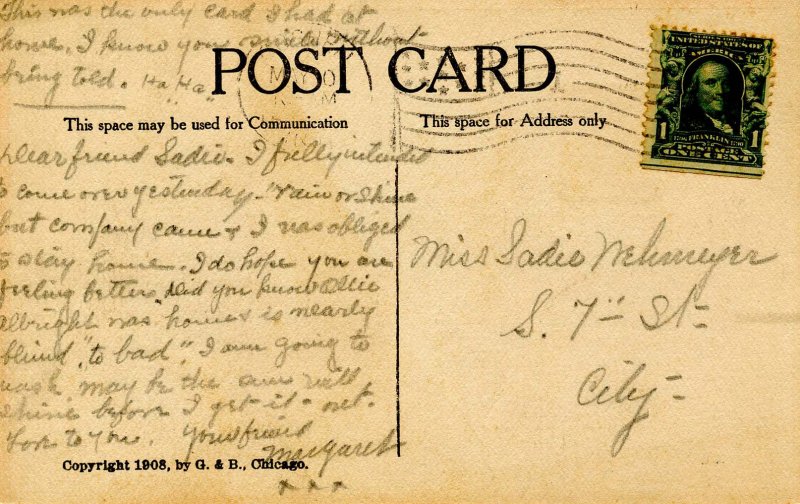 This was the only card I had at
home. I know you smile without
being told. Ha "Ha"
POST CARD
This space may be used for Communication
This space for Address only
UNITED STATES OF
AMERICA
1706 FRANKLIN 1790
1 1
POSTAGE
ONE CENT
Dear friend Sadie. I fully intended
to come over yesterday. "rain or shine
but company came & I was obliged
to stay home. I do hope you are
feeling better. Did you know Ollie
Albright was home & is nearly
blind, "to bad". I am going to
wash. may be the sun will
shine before I get it out.
Love to you. Your friend
Margaret
x x x
Miss Sadie Wehmeyer
S. 7" St-
City-
Copyright 1908, by G. & B., Chicago.